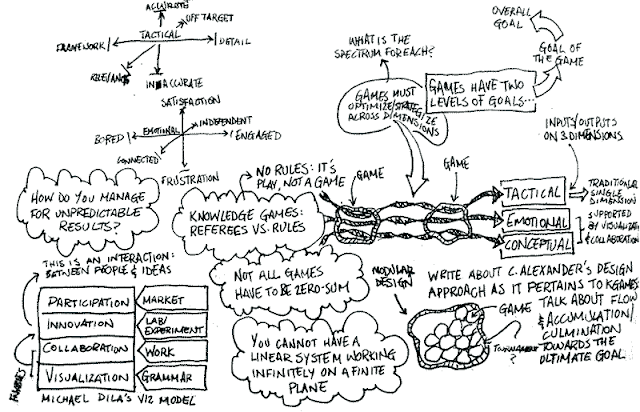 ACCURATE
OFF TARGET
TACTICAL
FRAMEWORK
DETAIL
INACCURATE
SATISFACTION
INDEPENDENT
BORED
EMOTIONAL
ENGAGED
CONNECTED
FRUSTRATION
WHAT IS THE
SPECTRUM FOR EACH?
GAMES MUST
OPTIMIZE/STRATEGIZE
ACROSS DIMENSIONS
OVERALL
GOAL
GOAL OF
THE GAME
GAMES HAVE TWO
LEVELS OF GOALS...
INPUTS/OUTPUTS
ON 3 DIMENSIONS
HOW DO YOU MANAGE
FOR UNPREDICTABLE
RESULTS?
NO RULES: IT'S
PLAY, NOT A GAME
KNOWLEDGE GAMES:
REFEREES VS. RULES
GAME
GAME
TACTICAL
EMOTIONAL
CONCEPTUAL
TRADITIONAL
SINGLE
DIMENSION
SUPPORTED
BY VISUALIZATION
& COLLABORATION
THIS IS AN INTERACTION:
BETWEEN PEOPLE & IDEAS
PARTICIPATION
MARKET
INNOVATION
LAB/
EXPERIMENT
COLLABORATION
WORK
VISUALIZATION
GRAMMAR
MICHAEL DILA'S VIZ MODEL
NOT ALL GAMES
HAVE TO BE ZERO-SUM
YOU CANNOT HAVE A
LINEAR SYSTEM WORKING
INFINITELY ON A FINITE
PLANE
MODULAR
DESIGN
WRITE ABOUT C. ALEXANDER'S DESIGN
APPROACH AS IT PERTAINS TO KGAMES
GAME
TALK ABOUT FLOW
& ACCUMULATION/
CULMINATION
TOWARDS THE
ULTIMATE GOAL
TOURNAMENT
?